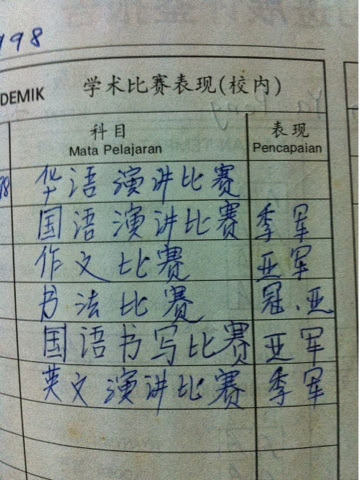 198
DEMIK 学术比赛表现(校内)
科目 表现
Mata Pelajaran Pencapaian
98 华语演讲比赛
国语演讲比赛 季军
作文比赛 亚军
书法比赛 冠、亚
国语书写比赛 亚军
英文演讲比赛 季军